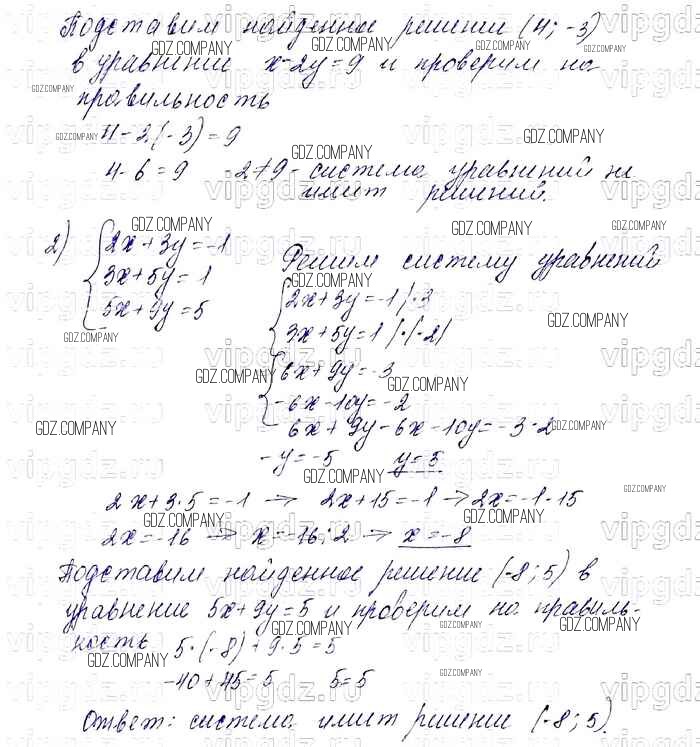 Подставим найденное решение (4; -3)
в уравнение x-2y=9 и проверим на
правильность
4-2(-3)=9
4-6=9 -2≠9 - система уравнений не
имит решений.
2) {2x+3y=-1
3x+5y=1
5x+9y=5
Решим систему уравнений
{2x+3y=-1 |·3
3x+5y=1 |·(-2)
{6x+9y=-3
-6x-10y=-2
6x+9y-6x-10y=-3-2
-y=-5 y=5
2x+3·5=-1 → 2x+15=-1 → 2x=-1-15
2x=-16 → x=-16:2 → x=-8
Подставим найденное решение (-8; 5) в
уравнение 5x+9y=5 и проверим на правиль-
ность 5·(-8)+9·5=5
-40+45=5 5=5
Ответ: система имит решение (-8; 5).
GDZ.COMPANY
vipgdz.ru